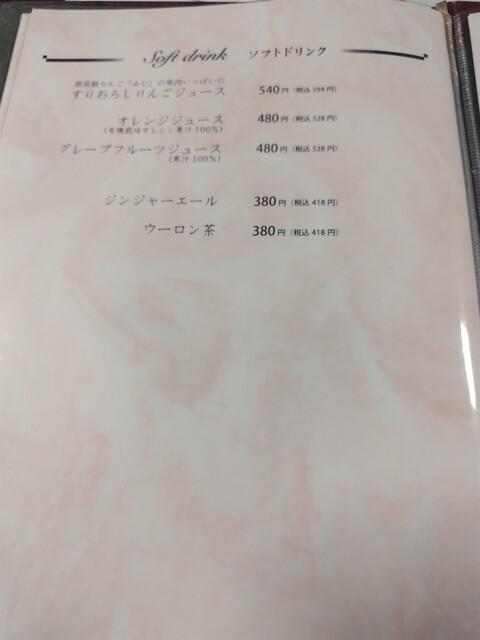 Soft drink ソフトドリンク
最高級りんご「ふじ」の果肉いっぱいの
すりおろしりんごジュース 540円(税込 594円)
オレンジジュース 480円(税込 528円)
(有機栽培オレンジ果汁100%)
グレープフルーツジュース 480円(税込 528円)
(果汁100%)
ジンジャーエール 380円(税込 418円)
ウーロン茶 380円(税込 418円)